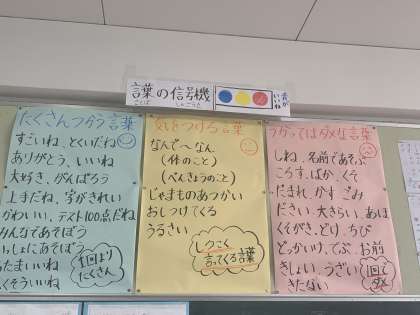 言葉の信号機
ことば しんごうき
青がいいね
たくさんつかう言葉
すごいね、とくいだね
ありがとう、いいね
大好き、がんばろう
上手だね、字がきれい
かわいい、テスト100点だね
みんなであそぼう
いっしょにあそぼう
あたまいいね
1回より
たくさん
気をつける言葉
なんで〜なん
(体のこと)
(べんきょうのこと)
じゃまものあつかい
おしつけてくる
うるさい
しつこく
言ってくる言葉
つかってはダメな言葉
しね、名前であそぶ
ころす、ばか、くそ
だまれ、かす ごみ
ださい、大きらい、あほ
くそがき、どり、ちび
どっかいけ、でぶ、お前
きしょい、うざい
きたない
1回で
ダメ